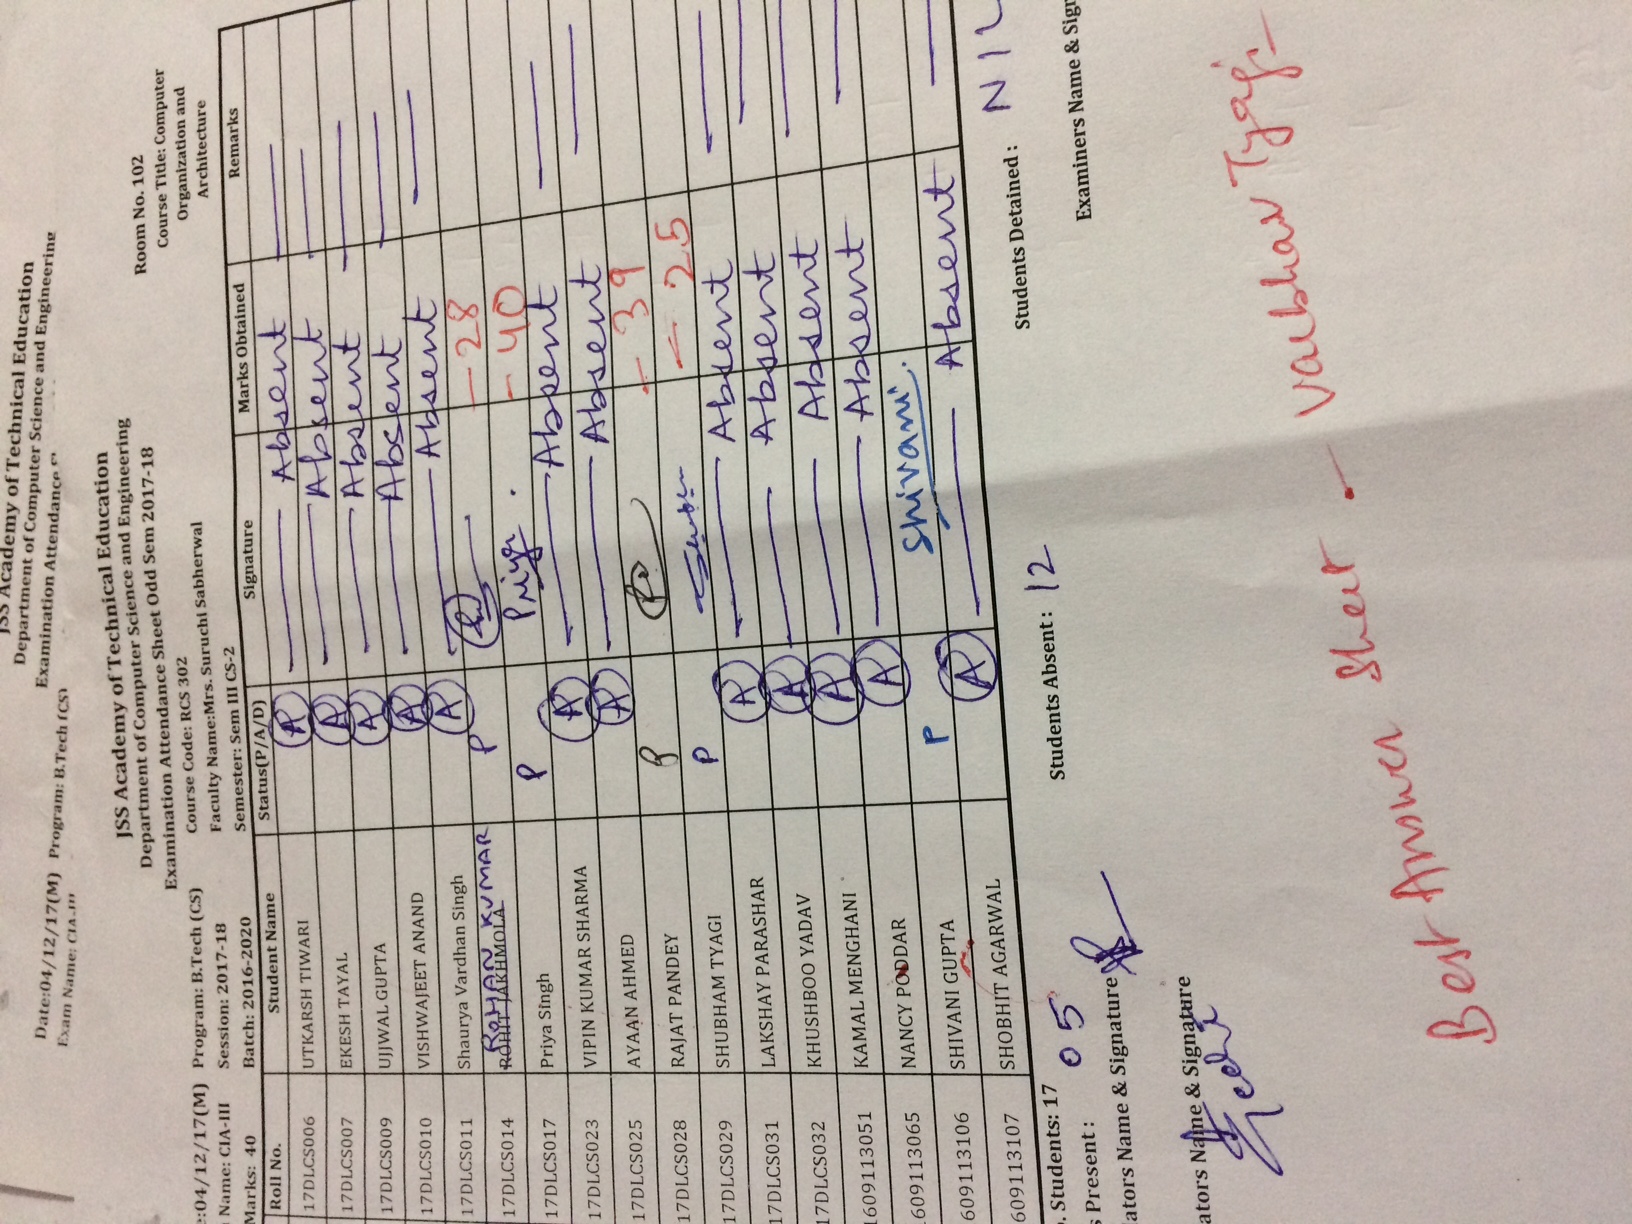 JSS Academy of Technical Education
Department of Computer Science and Engineering
Examination Attendance
Date:04/12/17(M) Program: B.Tech (CS)
Exam Name: CIA-III
JSS Academy of Technical Education
Department of Computer Science and Engineering
Examination Attendance Sheet Odd Sem 2017-18
Room No. 102
e:04/12/17(M) Program: B.Tech (CS) Course Code: RCS 302 Course Title: Computer
Name: CIA-III Session: 2017-18 Faculty Name:Mrs. Suruchi Sabherwal Organization and
Marks: 40 Batch: 2016-2020 Semester: Sem III CS-2 Architecture
Roll No. Student Name Status(P/A/D) Signature Marks Obtained Remarks
17DLCS006 UTKARSH TIWARI A Absent
17DLCS007 EKESH TAYAL A Absent
17DLCS009 UJJWAL GUPTA A Absent
17DLCS010 VISHWAJEET ANAND A Absent
17DLCS011 Shaurya Vardhan Singh A Absent
ROHAN KUMAR
17DLCS014 ROHIT JAKHMOLA P - 28
17DLCS017 Priya Singh P Priya - 40
17DLCS023 VIPIN KUMAR SHARMA A Absent
17DLCS025 AYAAN AHMED A Absent
17DLCS028 RAJAT PANDEY P - 39
17DLCS029 SHUBHAM TYAGI P - 25
17DLCS031 LAKSHAY PARASHAR A Absent
17DLCS032 KHUSHBOO YADAV A Absent
1609113051 KAMAL MENGHANI A Absent
1609113065 NANCY PODDAR A Absent
1609113106 SHIVANI GUPTA P Shivani.
1609113107 SHOBHIT AGARWAL A Absent
o. Students: 17 Students Absent : 12 Students Detained : NIL
s Present : 05
Examiners Name & Sign
lators Name & Signature
ators Name & Signature
Best Answer Sheet - Vaibhav Tyagi